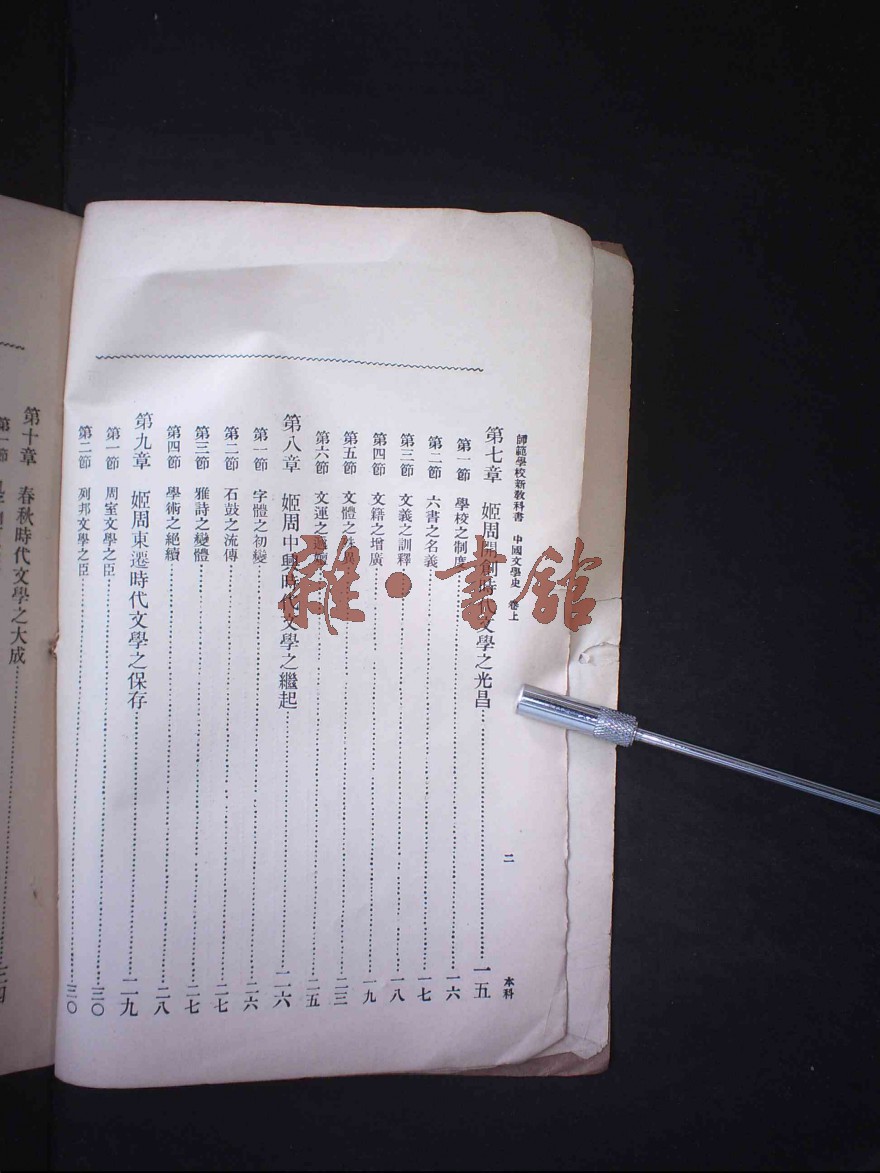 師範學校新教科書 中國文學史 卷上 二 本科
第七章 姬周開創時代文學之光昌 一五
第一節 學校之制度 一六
第二節 六書之名義 一七
第三節 文義之訓釋 一八
第四節 文籍之增廣 一九
第五節 文體之 二三
第六節 文運之 二五
第八章 姬周中興時代文學之繼起 二六
第一節 字體之初變 二六
第二節 石鼓之流傳 二七
第三節 雅詩之變體 二七
第四節 學術之絕續 二八
第九章 姬周東遷時代文學之保存 二九
第一節 周室文學之臣 三〇
第二節 列邦文學之臣 三〇
第十章 春秋時代文學之大成 三四
第一節
雜·書館